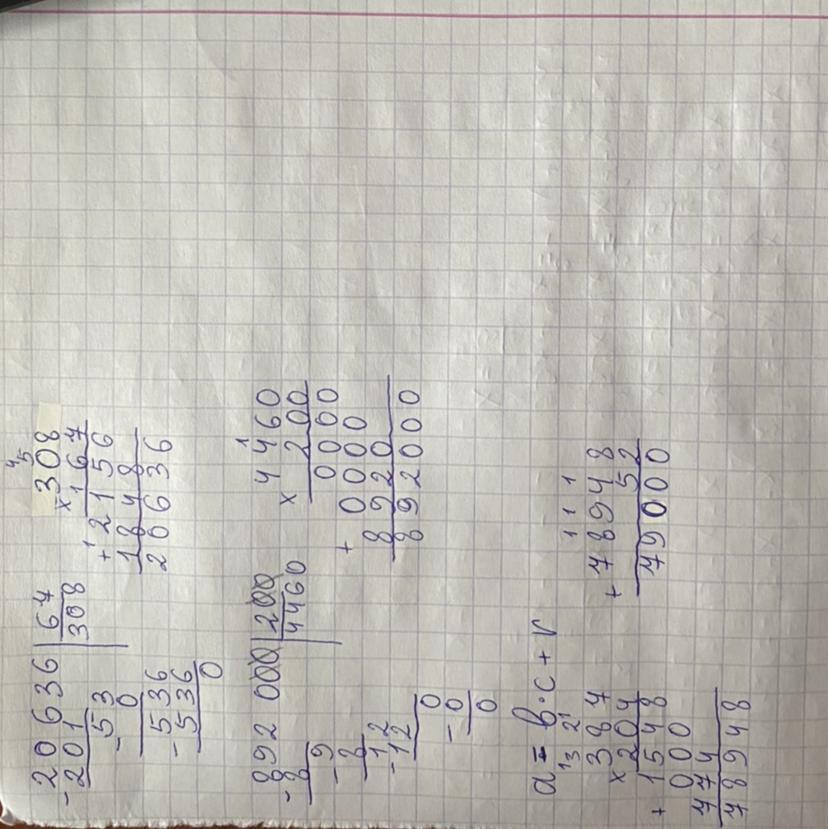 20636 | 67
-201 | 308
-53
0
-536
-536
0
45
×308
1 67
+12156
1848
20636
892 000 | 200
-8 4460
9
-8
12
-12
0
-0
0
1
4460
× 200
0000
+ 0000
8920
892000
a = b·c + r
13 21
387
× 204
+ 1548
000
774
78948
1 1 1
+ 78948
52
79000